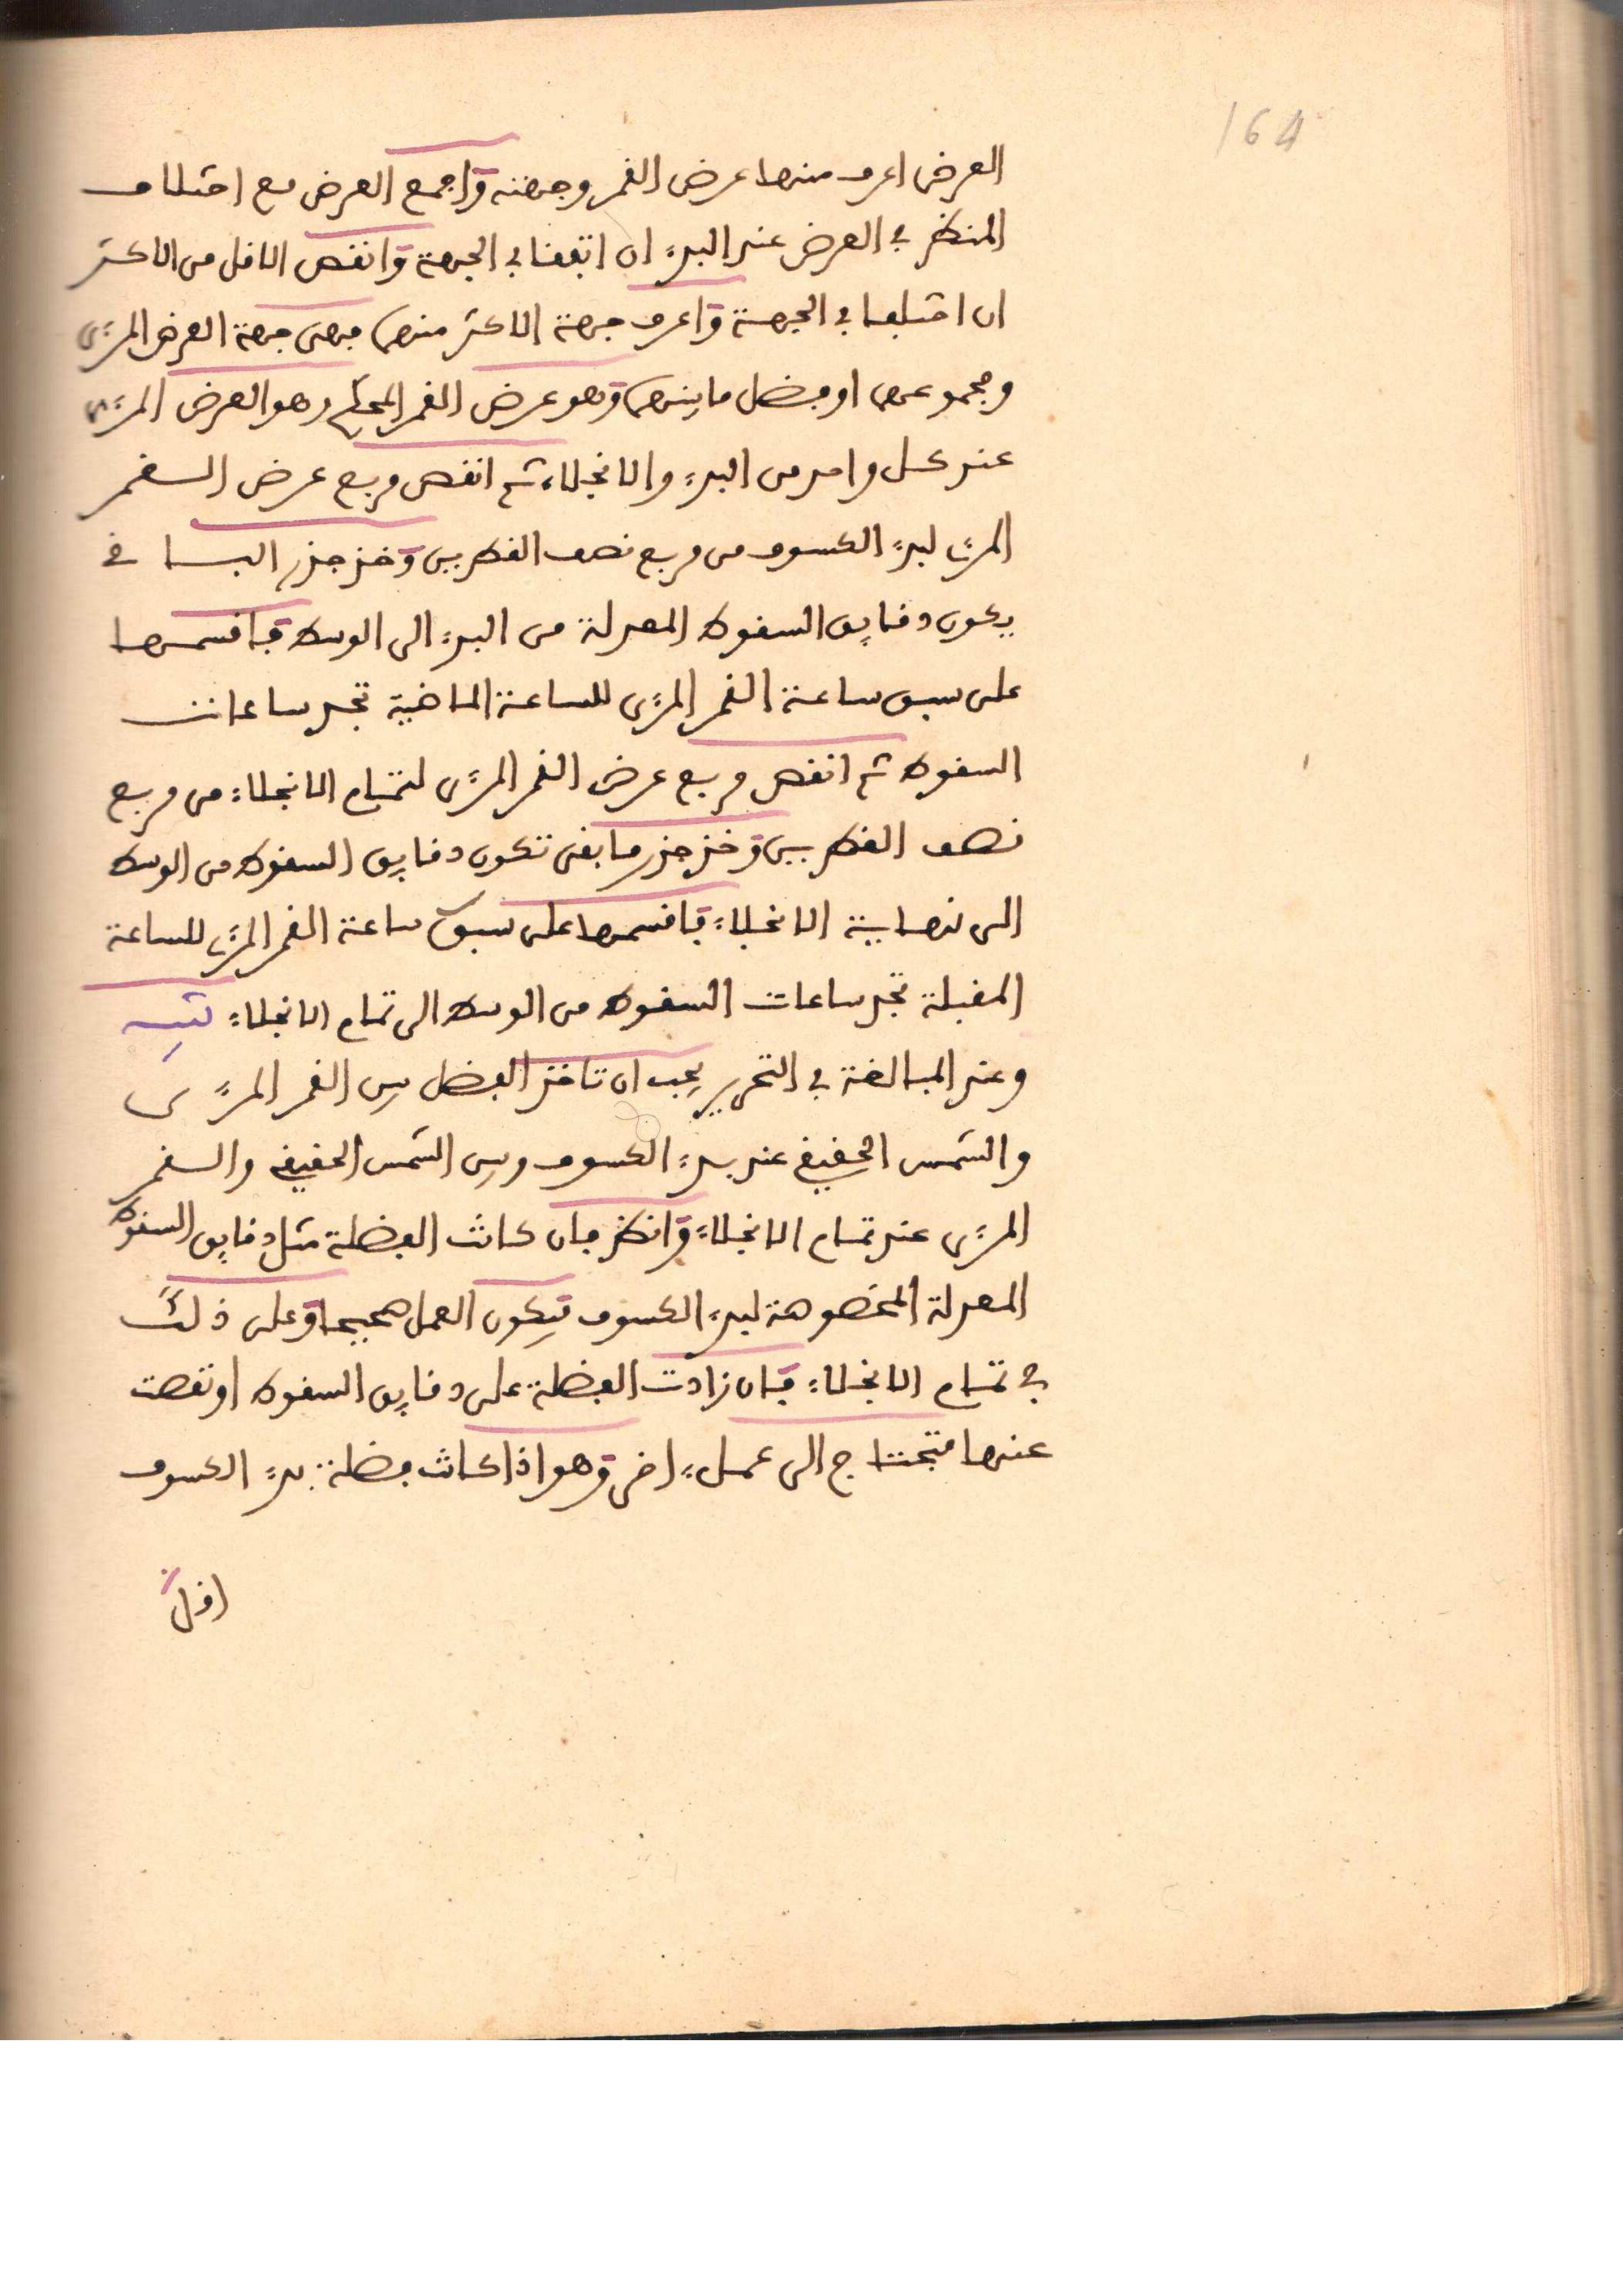 164
العرض اعرف منها عرض القمر وجهته واجمع العرض مع اختلاف
المنظر في العرض عند البدء ان اتفقا في الجهة وانقص الاقل من الاكثر
ان اختلفا في الجهة واعرف جهة الاكثر منهما فهي جهة العرض المرءى
ومجموعهما او فضل ما بينهما وهو عرض القمر المحكم وهو العرض المرءى
عند كل واحد من البدء والانجلاء ثم انقص مربع عرض القمر
المرءى لبدء الكسوف من مربع نصف القطرين وخذ جذر الباقي
يكون دقايق السقوط المعدلة من البدء الى الوسط فاقسمها
على سبق ساعة القمر المرءى للساعة الماضية تجد ساعات
السقوط ثم انقص مربع عرض القمر المرءى لتمام الانجلاء من مربع
نصف القطرين وخذ جذر ما بقى تكون دقايق السقوط من الوسط
الى نهاية الانجلاء فاقسمها على سبق ساعة القمر المرءى للساعة
المقبلة تجد ساعات السقوط من الوسط الى تمام الانجلاء تنبيه
وعند المبالغة في التحرير يجب ان تاخذ الفضل بين القمر المرءى
والشمس الحقيقي عند بدء الكسوف وبين الشمس الحقيقي والقمر
المرءى عند تمام الانجلاء وانظر فان كانت الفضلة مثل دقايق السقوط
المعدلة المخصوصة لبدء الكسوف فيكون العمل صحيحا وعلى ذلك
في تمام الانجلاء فان زادت الفضلة على دقايق السقوط او نقصت
عنها فتحتاج الى عمل اخر وهو اذا كانت فضلة بدء الكسوف
اقل